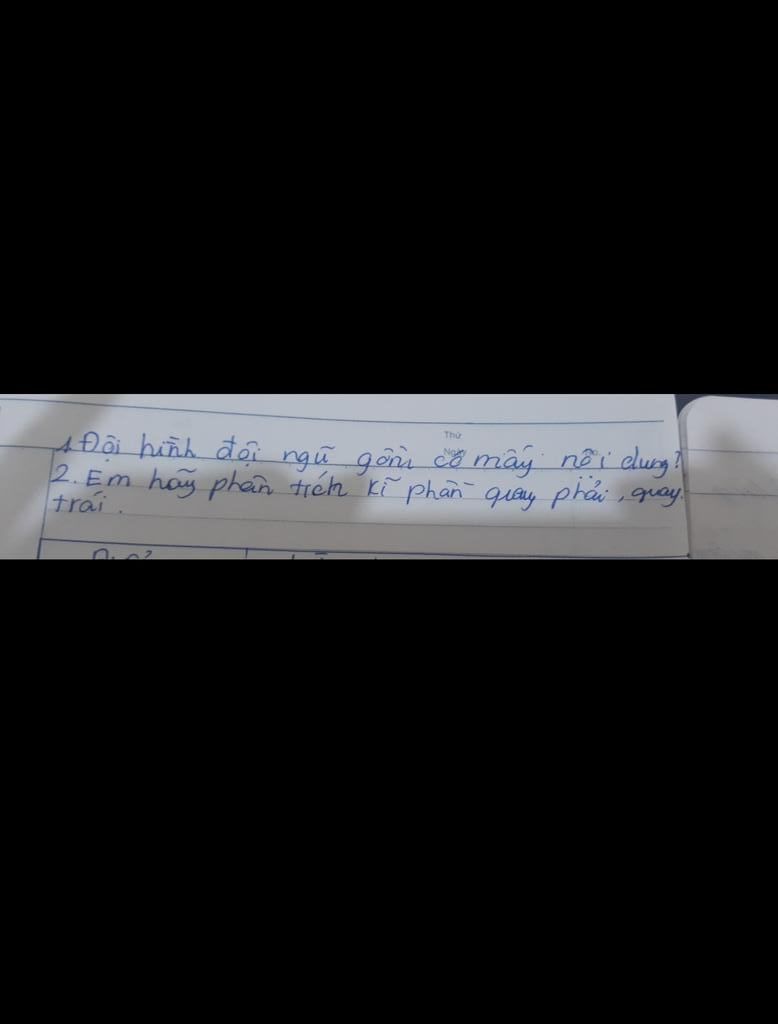 1. Đội hình đội ngũ gồm có mấy nội dung?
2. Em hãy phân tích kĩ phần quay phải, quay
trái.
Thứ
Ngày